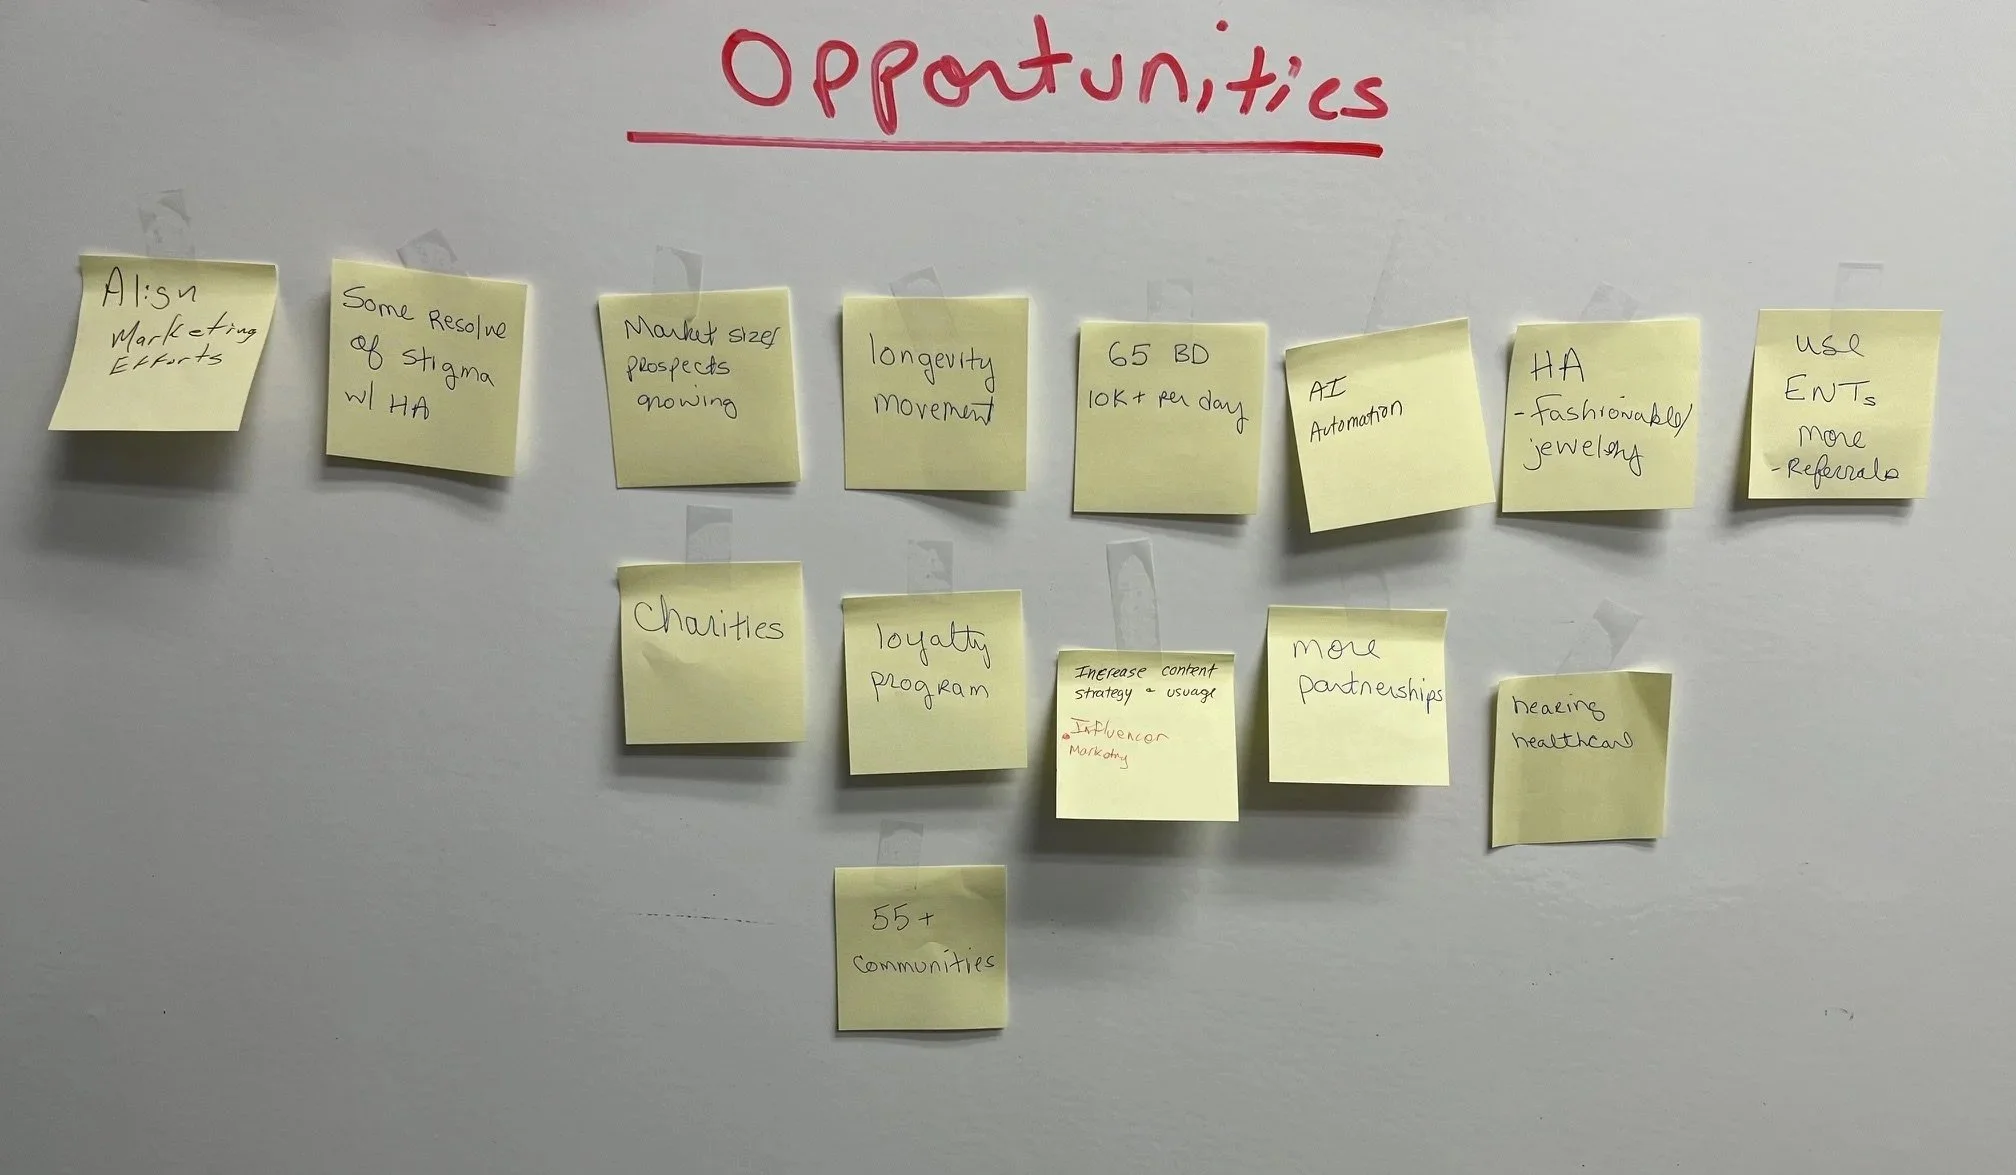 Opportunities
Align
Marketing
Efforts
Some Resolve
of stigma
w/ HA
Market size/
prospects
growing
longevity
movement
65 BD
10K+ per day
AI
Automation
HA
-fashionable/
jewelry
use
ENTs
more
-Referrals
Charities
loyalty
program
Increase content
strategy - usuage
• Influencer
Marketing
more
partnerships
hearing
healthcare
55+
communities